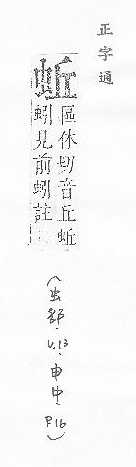 正字通
蚯
區休切音丘蚯
蚓見前蚓註
(虫部·V.13·申中·P.16)